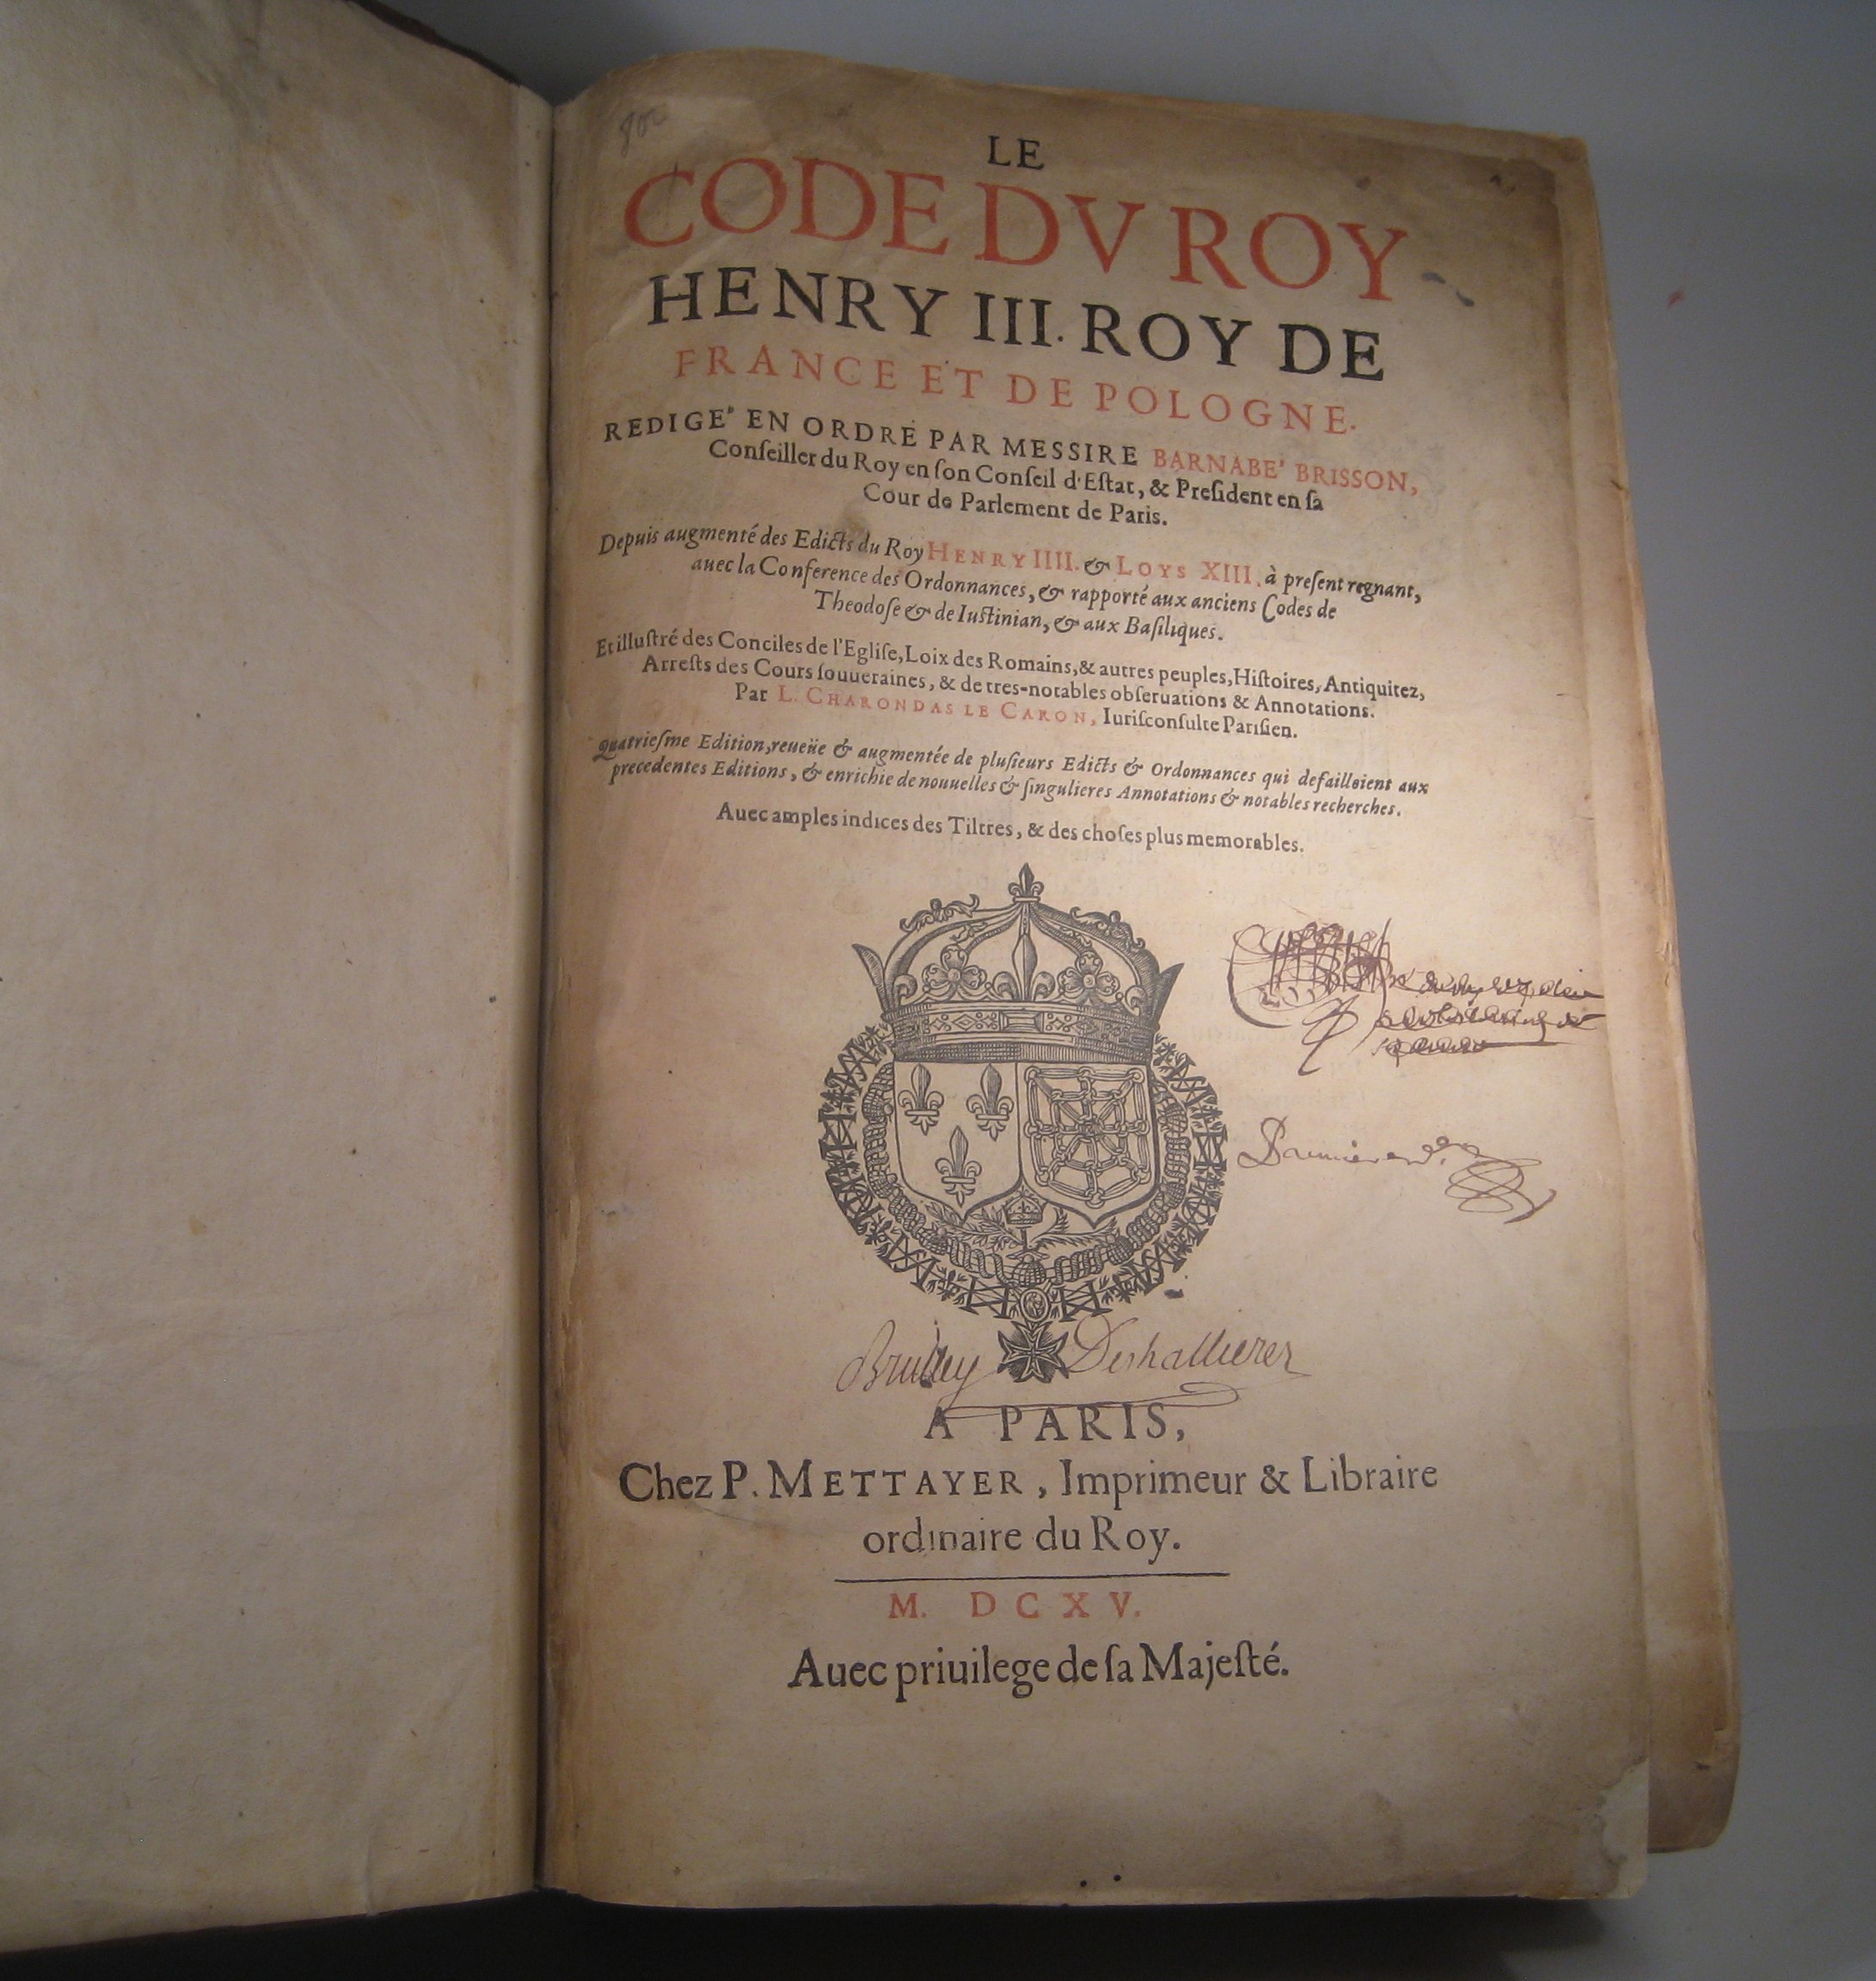 LE
CODE DV ROY
HENRY III. ROY DE
FRANCE ET DE POLOGNE.
REDIGE' EN ORDRE PAR MESSIRE BARNABE' BRISSON,
Conſeiller du Roy en ſon Conſeil d'Eſtat, & Preſident en ſa
Cour de Parlement de Paris.
Depuis augmenté des Edicts du Roy HENRY IIII. & LOYS XIII. à preſent regnant,
auec la Conference des Ordonnances, & rapporté aux anciens Codes de
Theodoſe & de Iuſtinian, & aux Baſiliques.
Et illuſtré des Conciles de l'Egliſe, Loix des Romains, & autres peuples, Hiſtoires, Antiquitez,
Arreſts des Cours ſouueraines, & de tres-notables obſeruations & Annotations.
Par L. CHARONDAS LE CARON, Iuriſconſulte Pariſien.
Quatrieſme Edition, reueüe & augmentée de pluſieurs Edicts & Ordonnances qui defailloient aux
precedentes Editions, & enrichie de nouuelles & ſingulieres Annotations & notables recherches.
Auec amples indices des Tiltres, & des choſes plus memorables.
A PARIS,
Chez P. METTAYER, Imprimeur & Libraire
ordinaire du Roy.
M. DCXV.
Auec priuilege de ſa Majeſté.